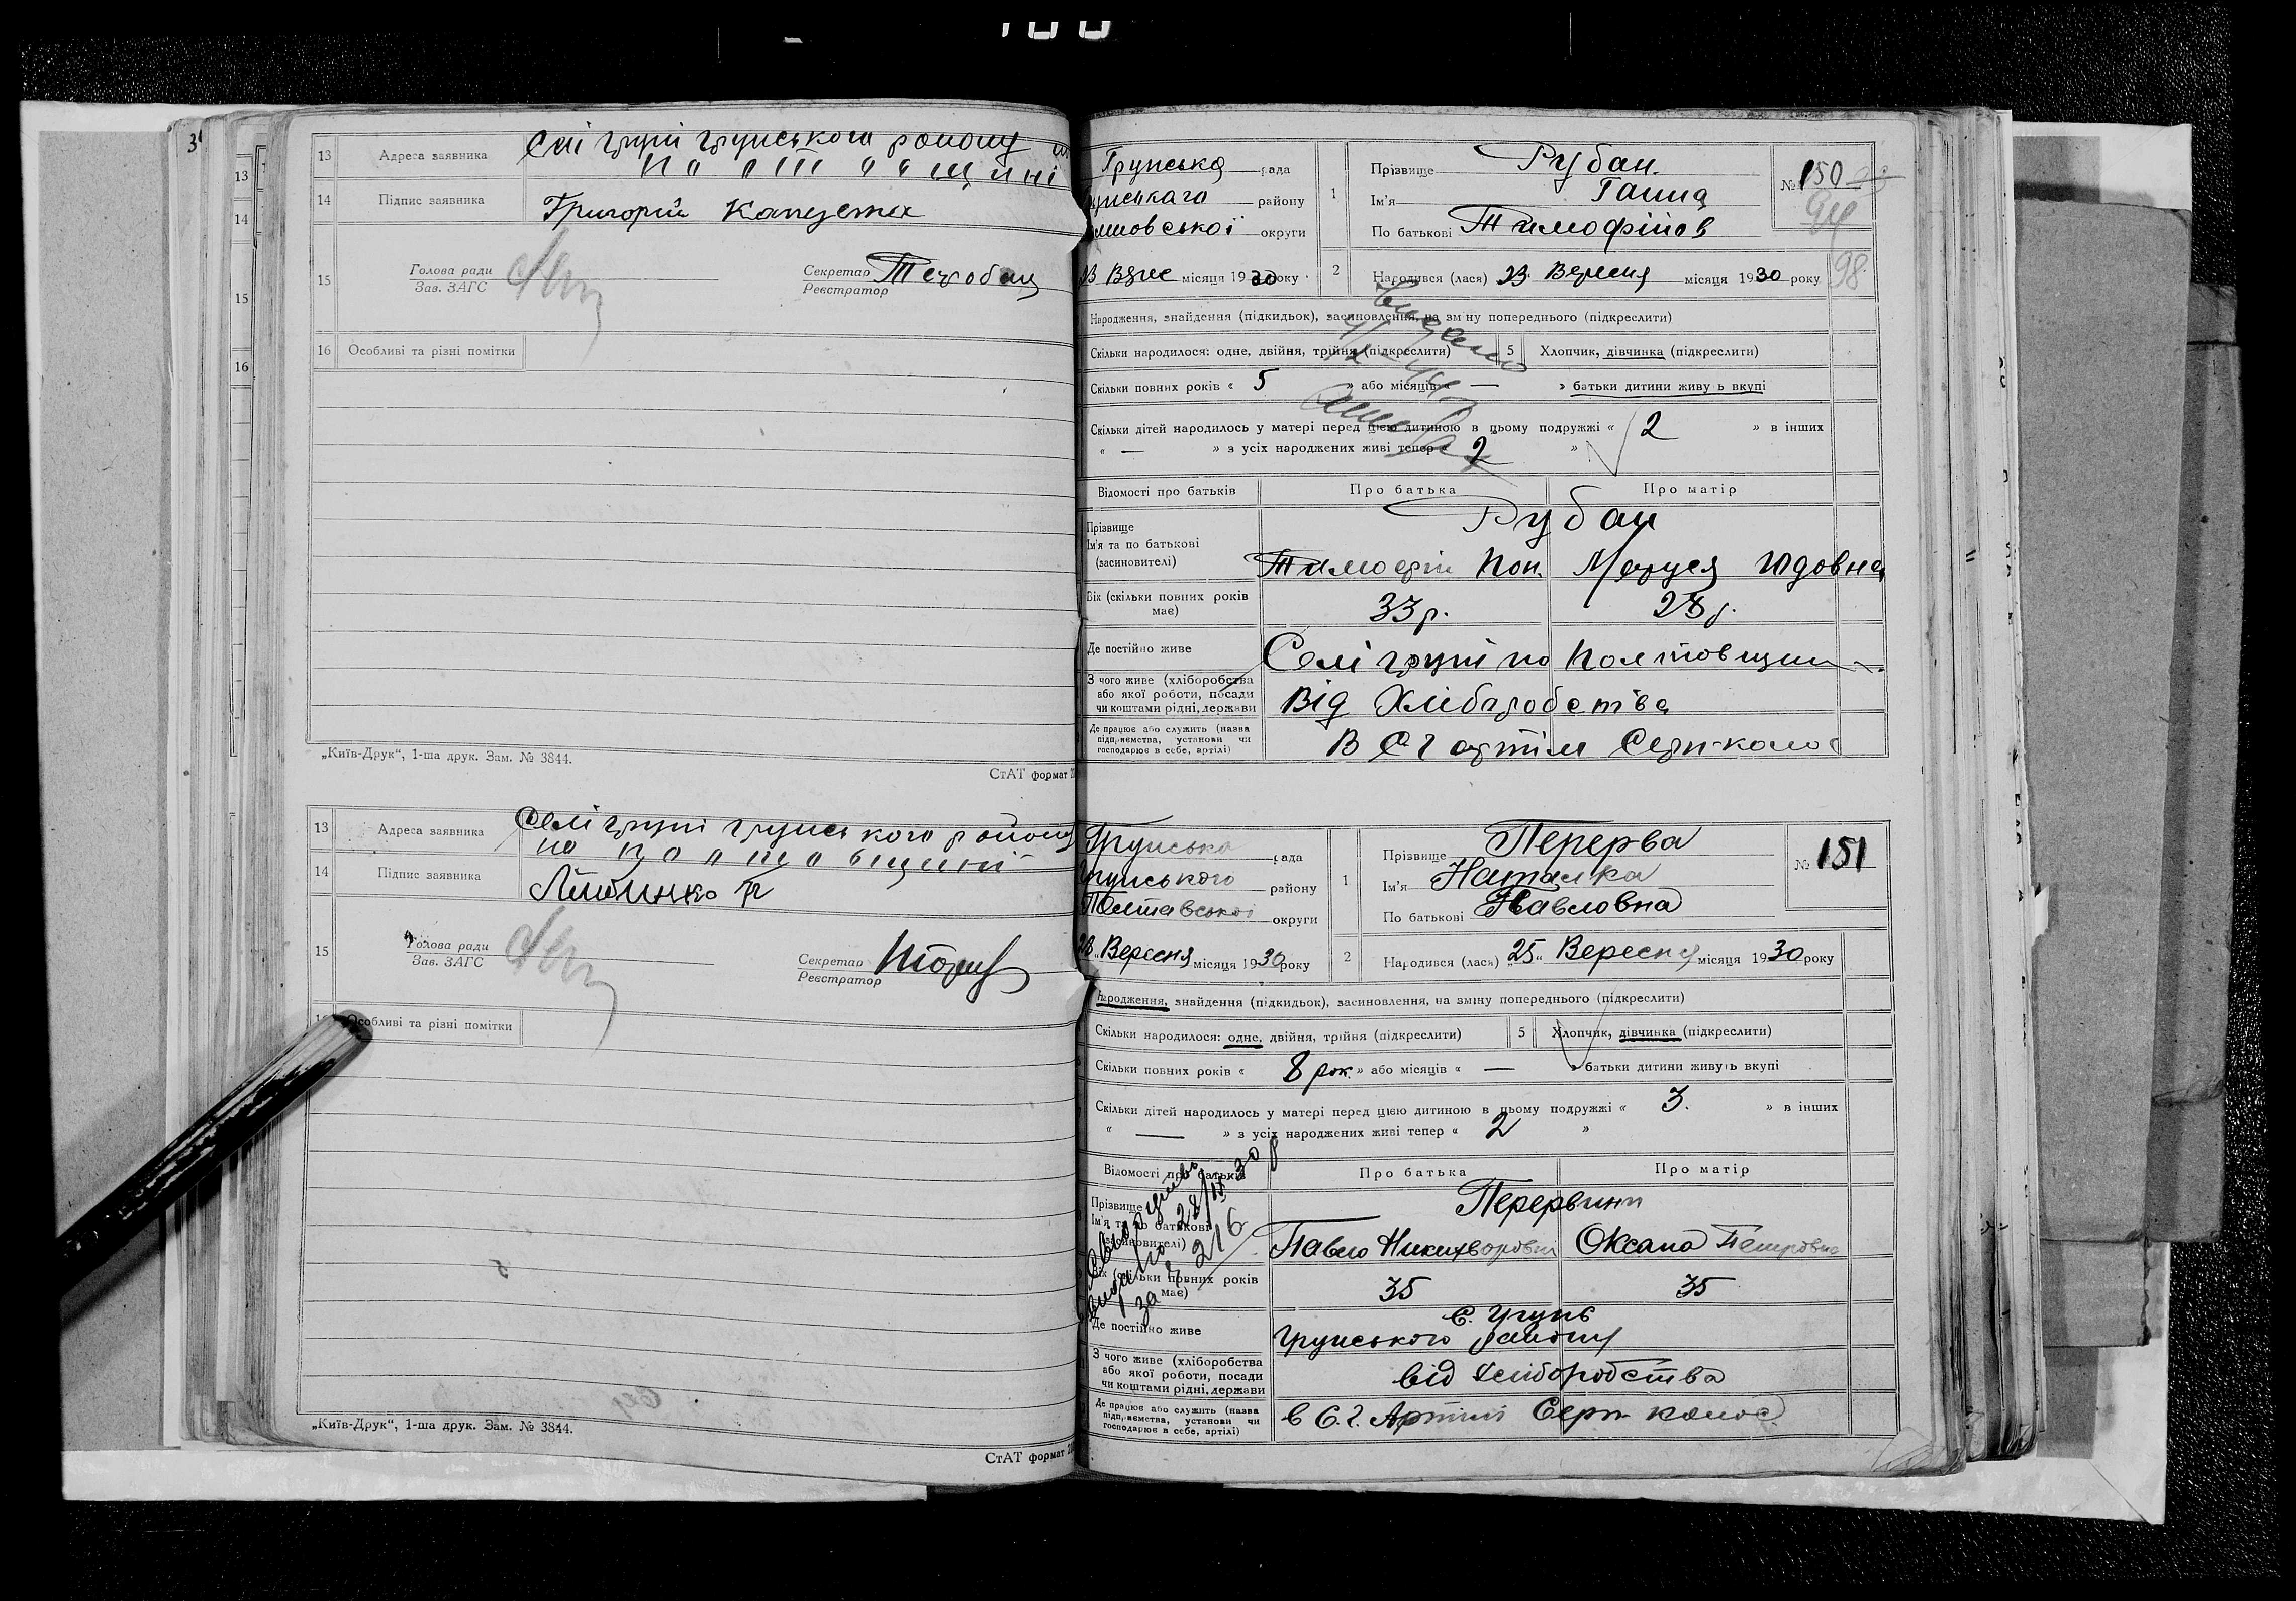 100
3
13
14
15
16
13 Адреса заявника Селі груні грунського району
на полтавщині
14 Підпис заявника Григорій Капуста
15 Голова ради
Зав. ЗАГС
Секретар
Реєстратор
16 Особливі та різні помітки
„Київ-Друк“, 1-ша друк. Зам. № 3844.
СтАТ формат
13 Адреса заявника Селі груні грунського району
на полтавщині
14 Підпис заявника
15 Голова ради
Зав. ЗАГС
Секретар
Реєстратор
Особливі та різні помітки
„Київ-Друк“, 1-ша друк. Зам. № 3844.
СтАТ формат
Грунська рада
району
округи
1 Прізвище Рубан
Ім'я Ганна
По батькові Тимофіїов
№ 150
94
98
23 місяця 1930 року
2 Народився (лася) 23 Вересня місяця 1930 року
Народження, знайдення (підкидьок), засиновлення, на зміну попереднього (підкреслити)
Скільки народилося: одне, двійня, трійня (підкреслити) 5 Хлопчик, дівчинка (підкреслити)
Видано
Скільки повних років « 5 » або місяців « — » батьки дитини живуть вкупі
Скільки дітей народилось у матері перед цією дитиною в цьому подружжі « 2 » в інших
« — » з усіх народжених живі тепер « 2 »
Відомості про батьків Про батька Про матір
Прізвище
Ім'я та по батькові
(засиновителі)
Рубан
Тимофій Кон. Маруся Юдовна
Вік (скільки повних років
має)
33 р. 28 р.
Де постійно живе Селі груні по Полтовщини
З чого живе (хліборобства
або якої роботи, посади
чи коштами рідні, держави
Від Хлібаробства
Де працює або служить (назва
підприємства, установи чи
господарює в себе, артілі)
В С Г артіли Серп-колос
Грунська рада
Грунського району
Полтавської округи
1 Прізвище Перерва
Ім'я Наталка
По батькові Павловна
№ 151
28 Вересня місяця 1930 року
2 Народився (лася) „25“ Вересня місяця 1930 року
Народження, знайдення (підкидьок), засиновлення, на зміну попереднього (підкреслити)
Скільки народилося: одне, двійня, трійня (підкреслити) 5 Хлопчик, дівчинка (підкреслити)
Скільки повних років « 8 рок. » або місяців « — » батьки дитини живуть вкупі
Скільки дітей народилось у матері перед цією дитиною в цьому подружжі « 3. » в інших
« — » з усіх народжених живі тепер « 2 »
Відомості про батьків Про батька Про матір
Прізвище
Ім'я та по батькові
(засиновителі)
28/IX 30 р
за № 216
Перервини
Павло Никихворович Оксана Петровна
Вік (скільки повних років
має)
35 35
Де постійно живе с. Грунь
Грунського району
З чого живе (хліборобства
або якої роботи, посади
чи коштами рідні, держави
від хліборобства
Де працює або служить (назва
підприємства, установи чи
господарює в себе, артілі)
в С.Г. Артілі Серп колос